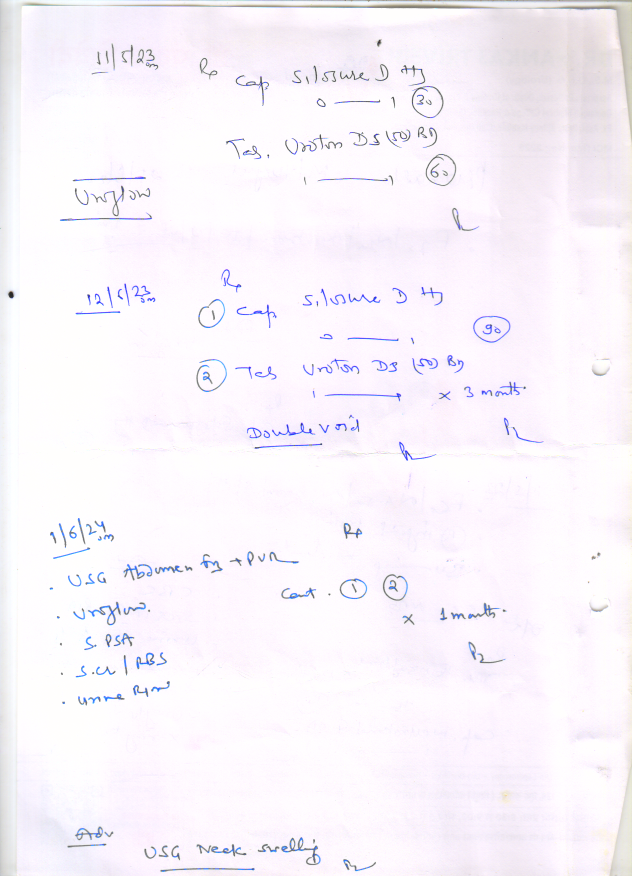 11/5/23
Rx Cap Silosure D
0 — 1 (30)
Tab. Uroton DS (50) BD
1 — 1 (60)
Uroflow
12/6/23
Rx
① Cap Silosure D
0 — 1 (90)
② Tab Uroton DS (50) BD
1 — 1 x 3 month.
Double void
1/6/24
Rx
. USG Abdomen + PVR
Cont. ① ②
. Uroflow.
x 1 month.
. S. PSA
. S.Cr / RBS
. Urine
Adv
USG Neck swelling